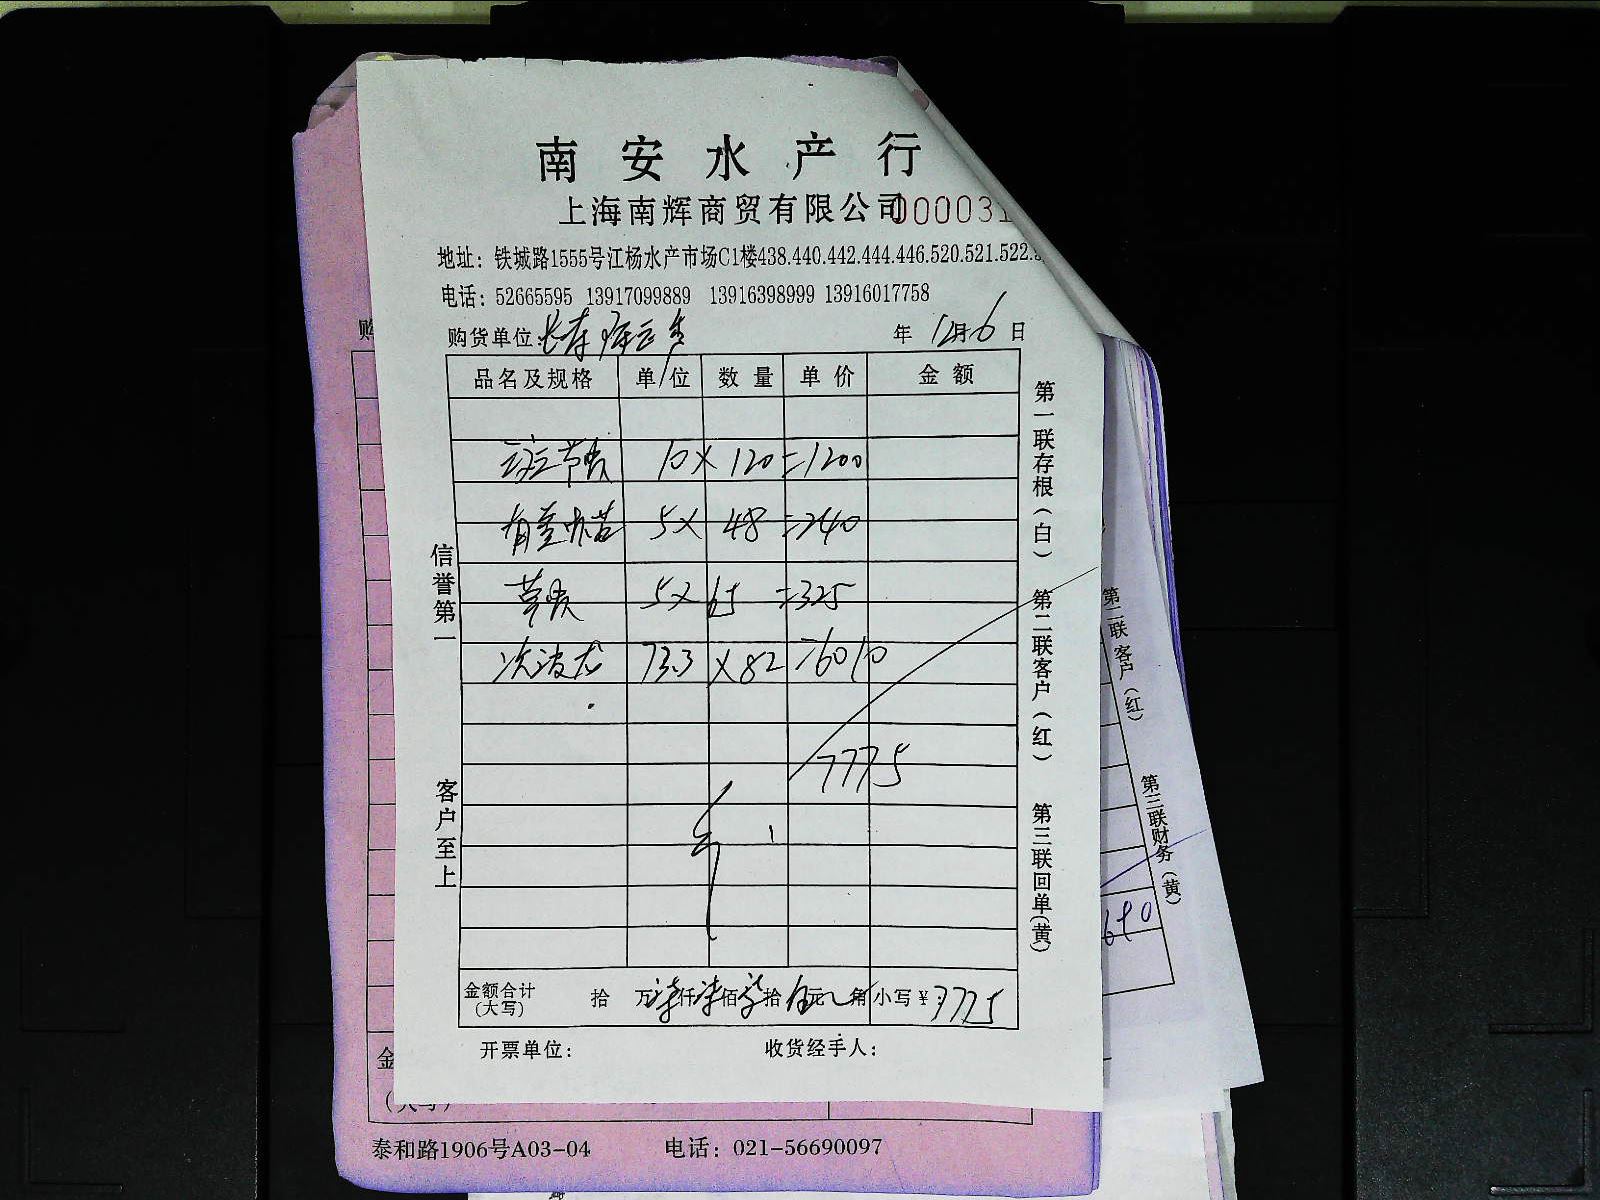 南安水产行
上海南辉商贸有限公司 000031
地址：铁城路1555号江杨水产市场C1楼438.440.442.444.446.520.521.522.
电话：52665595 13917099889 13916398999 13916017758
购货单位: 年 12月6日
品名及规格 单位 数量 单价 金额
10 × 120 =1200
5× 48 =240
5× 65 =325
次波龙 73.3 ×82 =6010
7775
金额合计(大写) 拾 万柒仟柒佰柒拾伍元 角 小写￥：7775
开票单位： 收货经手人：
信誉第一
客户至上
第一联存根(白)
第二联客户(红)
第三联回单(黄)
第二联客户(红)
第三联财务(黄)
购
金
(大写)
泰和路1906号A03-04 电话：021-56690097